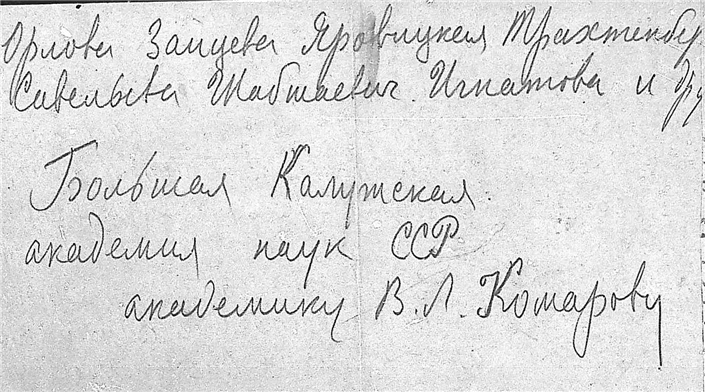 Орлова Зайцева Яровицкая Трахтенбе
Савельева Шабшаевич. Игнатова и др
Большая Калужская.
академия наук ССР
академику В. Л. Комарову